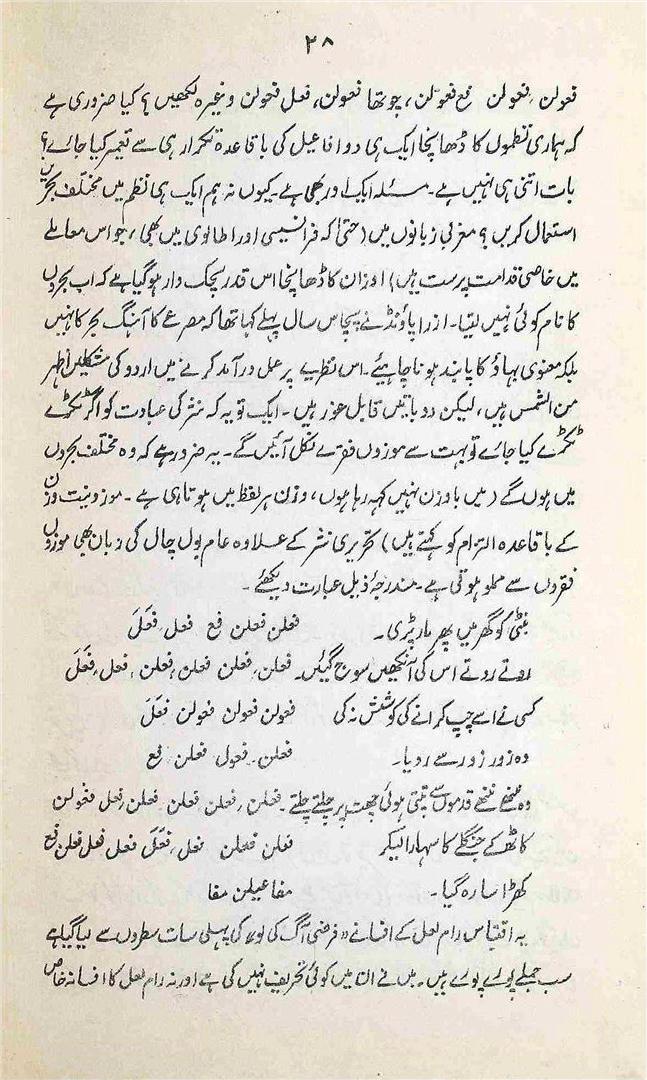 ۲۸
فعولن، فعولن فع فعولن، چوتھا فعولن، فعل فعولن وغیرہ لکھیں؟ کیا ضروری ہے
کہ ہماری نظموں کا ڈھانچا ایک ہی دو افاعیل کی باقاعدہ تکرار ہی سے تعمیر کیا جائے؟
بات اتنی ہی نہیں ہے۔ مسئلہ ایک اور بھی ہے۔ کیوں نہ ہم ایک ہی نظم میں مختلف بحریں
استعمال کریں؟ مغربی زبانوں میں (حتیٰ کہ فرانسیسی اور اطالوی میں بھی، جو اس معاملے
میں خاصی قدامت پرست ہیں) اوزان کا ڈھانچا اس قدر لچک دار ہو گیا ہے کہ اب بحروں
کا نام کوئی نہیں لیتا۔ ازرا پاؤنڈ نے پچاس سال پہلے کہا تھا کہ مصرعے کا آہنگ بحر کا نہیں
بلکہ معنوی بہاؤ کا پابند ہونا چاہیئے۔ اس نظریے پر عمل درآمد کرنے میں اردو کی مشکلیں اظہر
من الشمس ہیں، لیکن دو باتیں قابل غور ہیں۔ ایک تو یہ کہ نثر کی عبارت کو اگر ٹکڑے
ٹکڑے کیا جائے تو بہت سے موزوں فقرے نکل آئیں گے۔ یہ ضرور ہے کہ وہ مختلف بحروں
میں ہوں گے (میں باوزن نہیں کہہ رہا ہوں، وزن ہر لفظ میں ہوتا ہی ہے۔ موزونیت وزن
کے باقاعدہ التزام کو کہتے ہیں) تحریری نثر کے علاوہ عام بول چال کی زبان بھی موزوں
فقروں سے مملو ہوتی ہے۔ مندرجۂ ذیل عبارت دیکھئے۔
بنٹی کو گھر میں پھر مار پڑی۔ فعلن فعلن فع فعل، فعلَ
روتے روتے اس کی آنکھیں سوج گئیں۔ فعلن، فعلن فعلن، فعلن، فعل، فعَلَ
کسی نے اسے چپ کرانے کی کوشش نہ کی فعولن فعولن فعولن فعلَ
وہ زور زور سے رویا۔ فعلن، فعول فعلن فع
وہ ننھے ننھے قدموں سے تپتی ہوئی چھت پر چلتے چلتے۔ فعلن، فعلن فعلن فعلن فعلن، فعل فعولن
کاٹھ کے جنگلے کا سہارا لیکر فعلن فعلن فعل، فعَلَ فعل فعل فعلن فع
کھڑا سا رہ گیا۔ مفاعیلن مفا
یہ اقتباس رام لعل کے افسانے "فرضی آگ کی لو" کی پہلی سات سطروں سے لیا گیا ہے
سب جملے پورے پورے ہیں۔ میں نے ان میں کوئی تحریف نہیں کی ہے اور نہ رام لعل کا افسانہ خاص